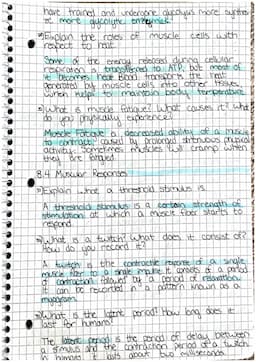 have trained and undergone glycolysis more
or more glycolytic enzymes.
Explain the roles of muscle cells with
respect to heat.
Some of the energy released during cellular
respiration is transferred to ATP, but most of
it becomes heat. Blood transports the heat
generated by muscle cells into other tissues,
which helps to maintain body temperature
What is muscle fatigue? What causes it? What
do you physically experience?
Muscle Fatigue is a decreased ability of a muscle
to contract, caused by prolonged strenuous physical
activity. Sometimes muscles will cramp when
they are fatigued.
8.4 Muscular Responses
Explain what a threshold stimulus is
A threshold stimulus is a certain strength of
stimulation at which a muscle fiber starts to
respond.
What is a twitch? What does it consist of?
How do you record it?
A twitch is the contractile response of a single
muscle fiber to a single impulse. It consists of a period
of contraction followed by a period of relaxation.
It can be recorded in a pattern known as a
myogram.
What is the latent period? How long does it
last for humans?
The latent period is the period of delay between
a stimulus and the contraction period of a twitch.
In humans, it lasts about two milliseconds.